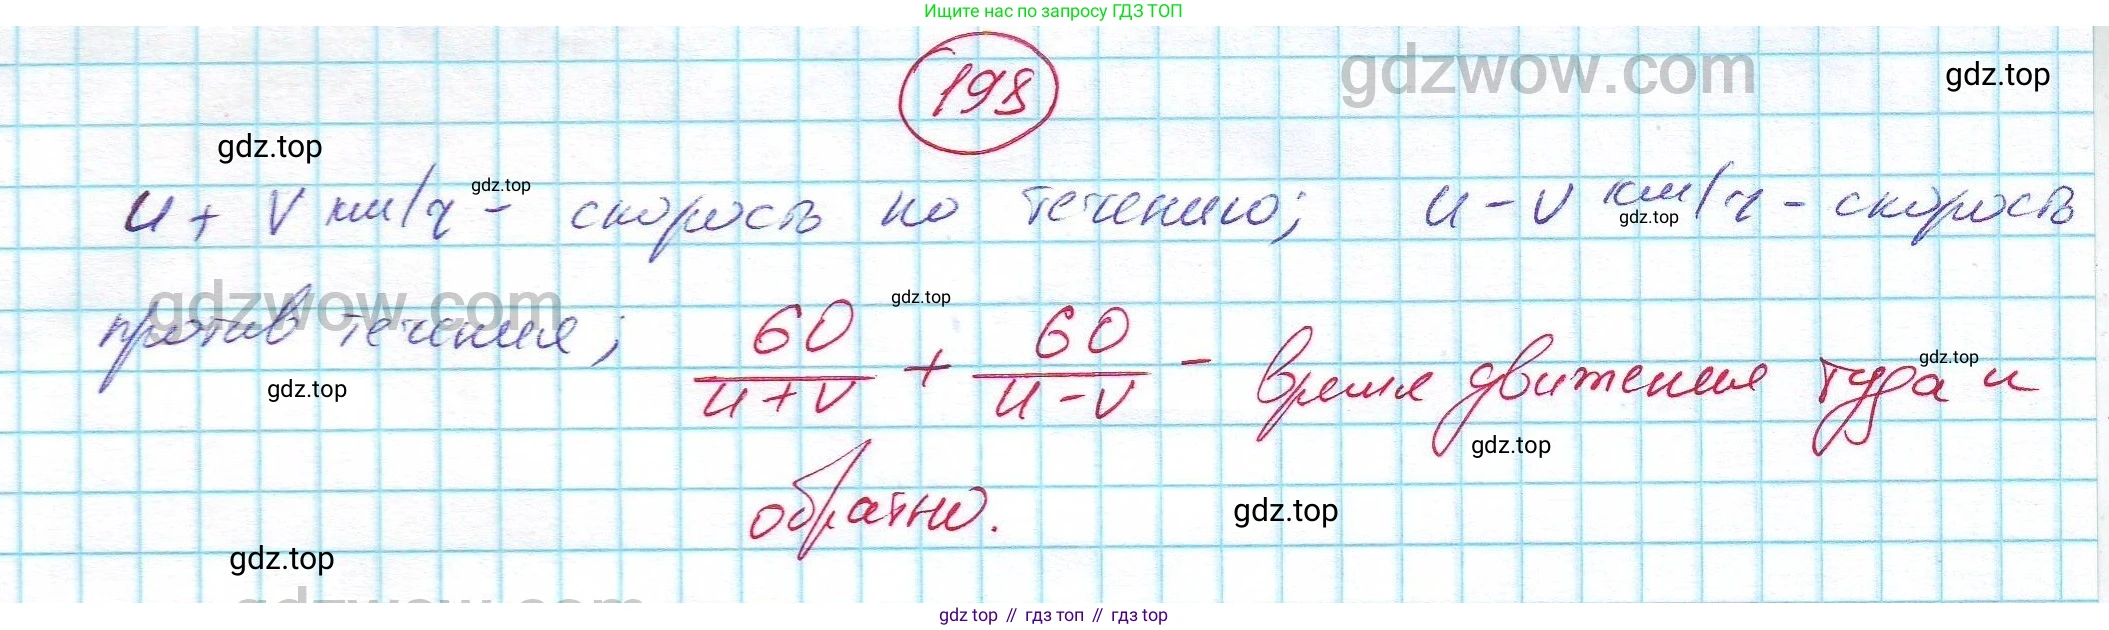 Ищите нас по запросу ГДЗ ТОП
198
gdzwow.com
gdz.top
gdz.top
u + v км/ч - скорость по течению; u - v км/ч - скорость
gdz.top
gdz.top
gdzwow.com
против течения; 60/(u+v) + 60/(u-v) - время движения туда и
gdz.top
gdz.top
gdz.top
gdz.top
обратно.
gdz.top
gdz.top
gdzwow.com
gdz top // гдз топ // гдз top